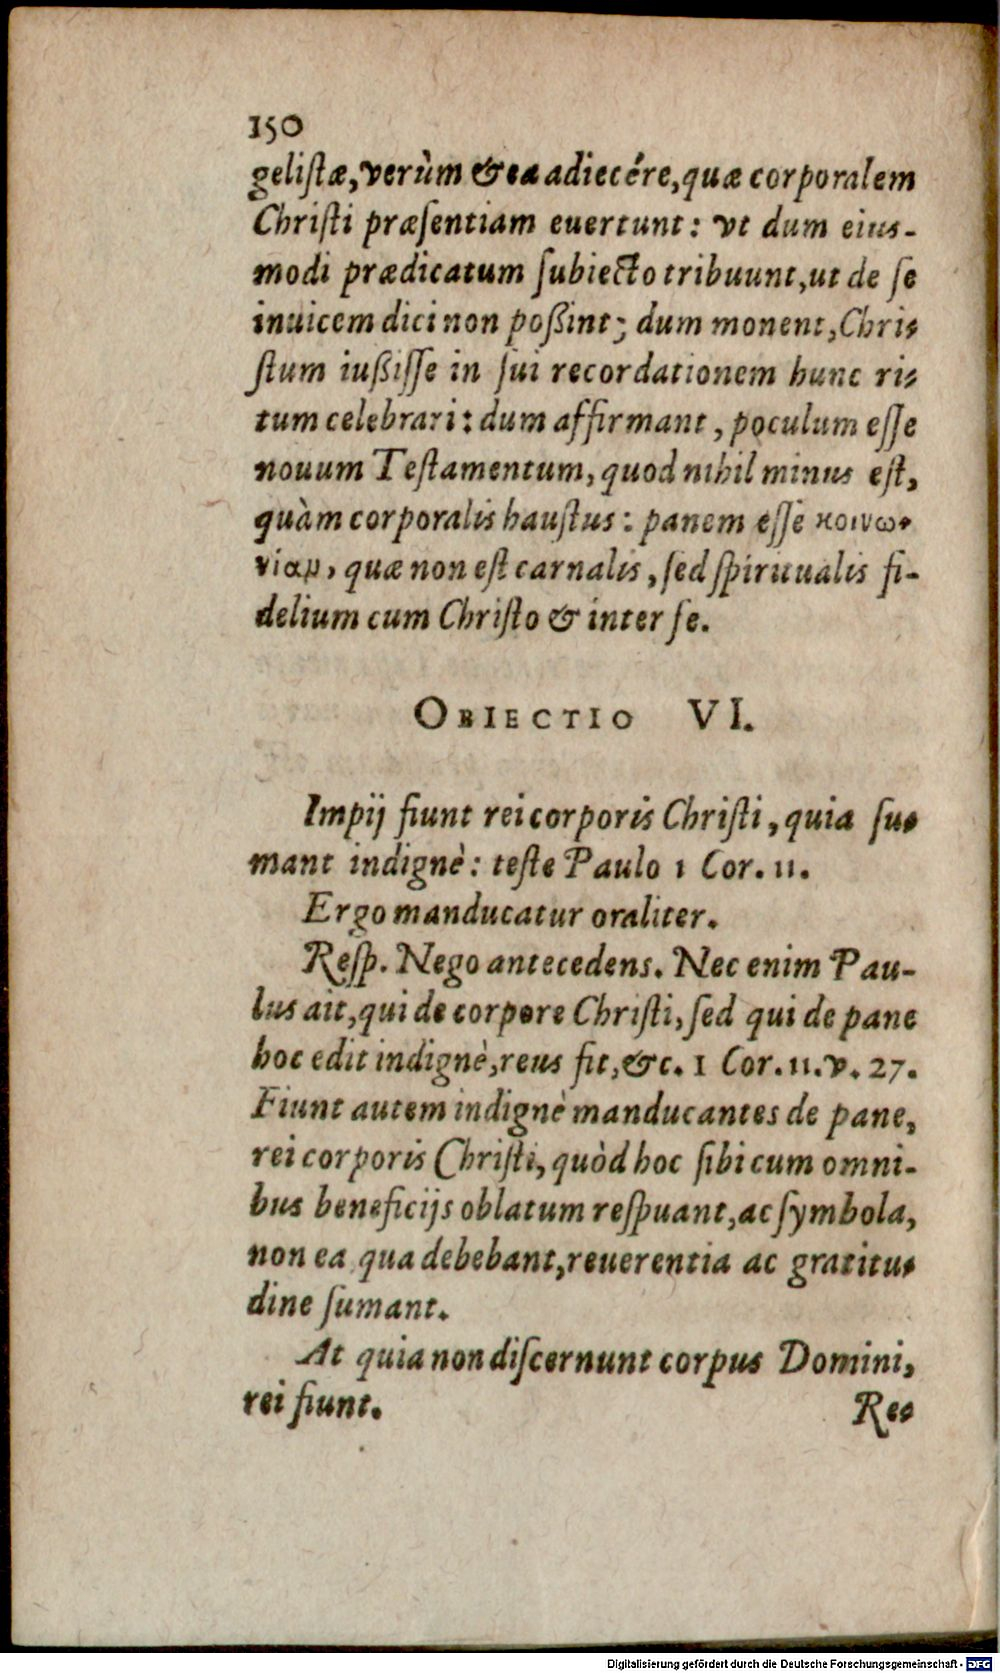 150
geliſtæ, verùm & ea adiecére, quæ corporalem
Chriſti præſentiam euertunt: vt dum eius-
modi prædicatum ſubiecto tribuunt, ut de ſe
inuicem dici non poßint; dum monent, Chri-
ſtum iußiſſe in ſui recordationem hunc ri-
tum celebrari: dum affirmant, poculum eſſe
nouum Teſtamentum, quod nihil minus eſt,
quàm corporalis hauſtus: panem eſſe κοινω-
νίαμ, quæ non eſt carnalis, ſed ſpiritualis fi-
delium cum Chriſto & inter ſe.
OBIECTIO VI.
Impij fiunt rei corporis Chriſti, quia ſu-
mant indignè: teſte Paulo 1 Cor. 11.
Ergo manducatur oraliter.
Reſp. Nego antecedens. Nec enim Pau-
lus ait, qui de corpore Chriſti, ſed qui de pane
hoc edit indignè, reus fit, &c. 1 Cor. 11. v. 27.
Fiunt autem indignè manducantes de pane,
rei corporis Chriſti, quòd hoc ſibi cum omni-
bus beneficijs oblatum reſpuant, ac ſymbola,
non ea qua debebant, reuerentia ac gratitu-
dine ſumant.
At quia non diſcernunt corpus Domini,
rei fiunt.
Re-
Digitalisierung gefördert durch die Deutsche Forschungsgemeinschaft - DFG